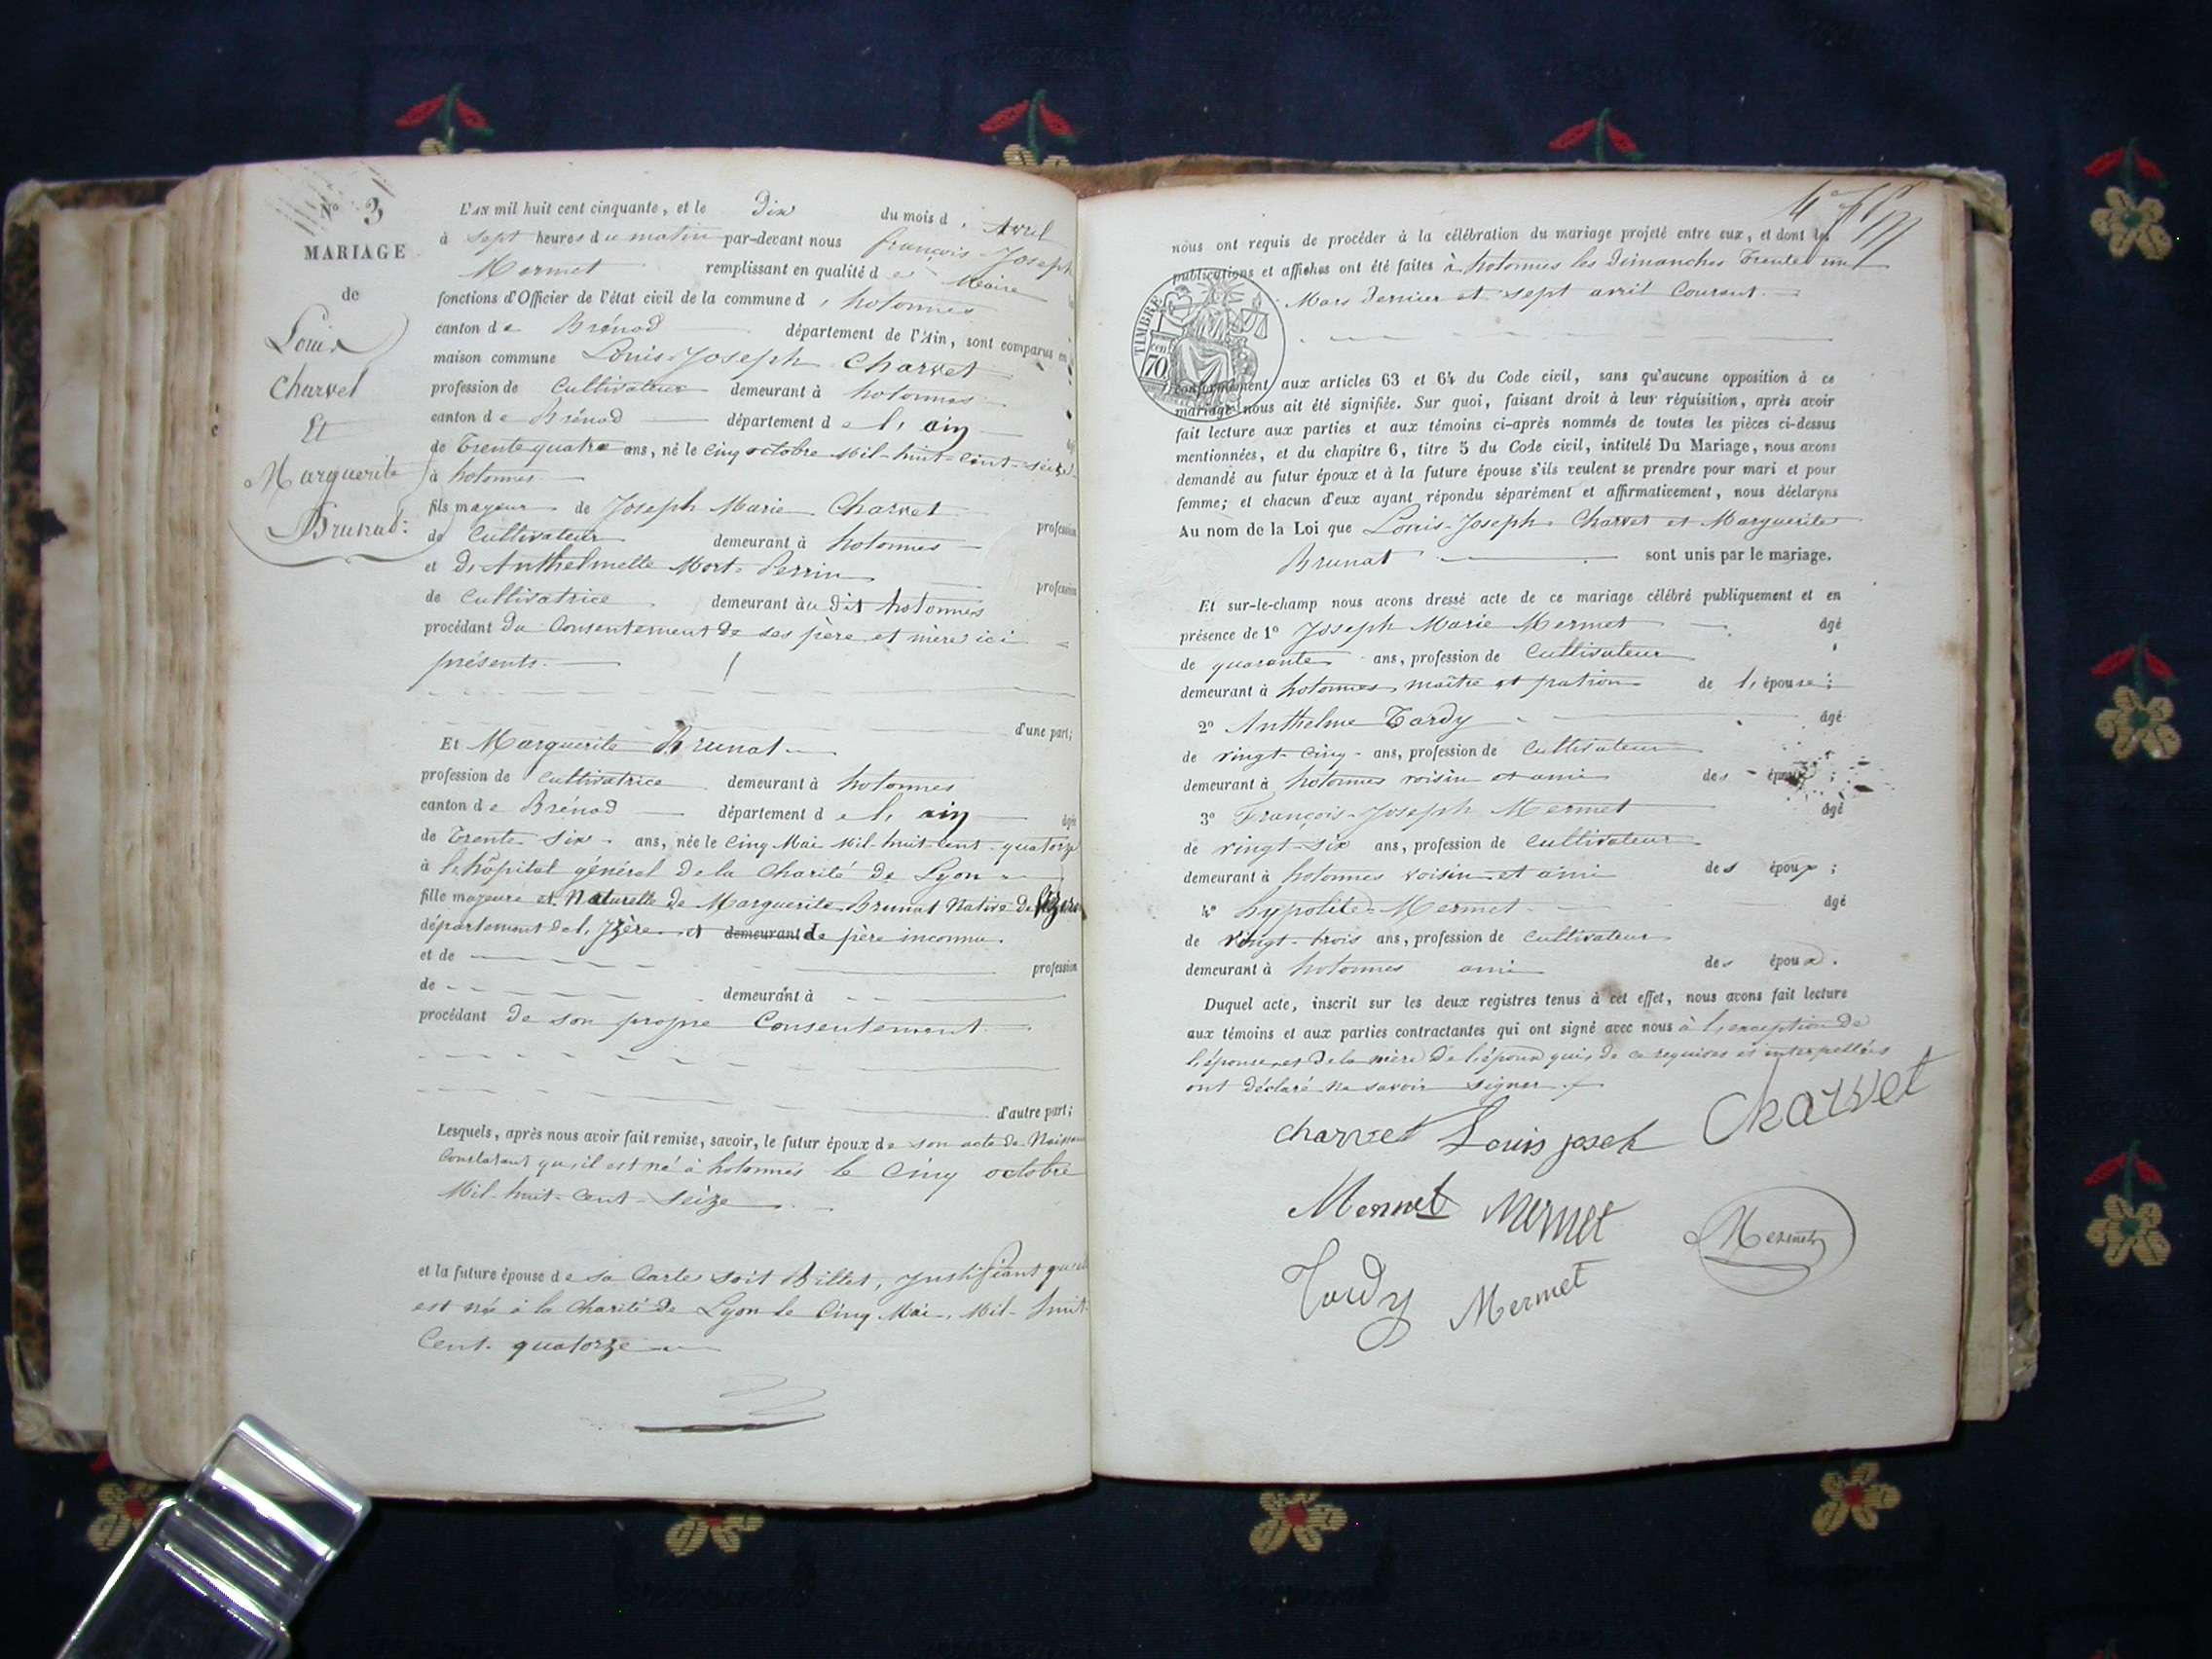 N° 3
MARIAGE
de
Louis
Charvet
Et
Marguerite
Brunat
L'AN mil huit cent cinquante, et le dix du mois d' Avril
à sept heures du matin par-devant nous françois-Joseph
Mermet remplissant en qualité de Maire
fonctions d'Officier de l'état civil de la commune d' hotonnes
canton de Brénod département de l'Ain, sont comparus en
maison commune Louis-Joseph Charvet
profession de Cultivateur demeurant à hotonnes
canton de Brénod département de l' ain
de Trente quatre ans, né le Cinq octobre Mil-huit-Cent-seize
à hotonnes
fils majeur de Joseph Marie Charvet profession
de Cultivateur demeurant à hotonnes
et de Anthelmette Mort-Perrin profession
de Cultivatrice demeurant au dit hotonnes
procédant du Consentement de ses père et mère ici
présents.
d'une part;
Et Marguerite Brunat
profession de Cultivatrice demeurant à hotonnes
canton de Brénod département de l' ain âgée
de Trente six ans, née le Cinq Mai Mil-huit-Cent-quatorze
à l'hôpital général de la Charité de Lyon
fille majeure et Naturelle de Marguerite Brunat Native de
département de l'Izère et demeurant de père inconnu.
et de profession
de demeurant à
procédant de son propre Consentement.
d'autre part;
Lesquels, après nous avoir fait remise, savoir, le futur époux de son acte de Naissance
Constatant qu'il est né à hotonnes le Cinq octobre
Mil-huit-Cent-Seize
et la future épouse de sa Carte soit Billet, Justifiant qu'elle
est née à la Charité de Lyon le Cinq Mai, Mil-huit-
Cent-quatorze
nous ont requis de procéder à la célébration du mariage projeté entre eux, et dont les
publications et affiches ont été faites à hotonnes les dimanches Trente un
Mars dernier et sept avril Courant.
TIMBRE
70
conformément aux articles 63 et 64 du Code civil, sans qu'aucune opposition à ce
mariage nous ait été signifiée. Sur quoi, faisant droit à leur réquisition, après avoir
fait lecture aux parties et aux témoins ci-après nommés de toutes les pièces ci-dessus
mentionnées, et du chapitre 6, titre 5 du Code civil, intitulé Du Mariage, nous avons
demandé au futur époux et à la future épouse s'ils veulent se prendre pour mari et pour
femme; et chacun d'eux ayant répondu séparément et affirmativement, nous déclarons
Au nom de la Loi que Louis-Joseph Charvet et Marguerite
Brunat sont unis par le mariage.
Et sur-le-champ nous avons dressé acte de ce mariage célébré publiquement et en
présence de 1° Joseph Marie Mermet âgé
de quarante ans, profession de Cultivateur
demeurant à hotonnes maître et patron de l'épouse;
2° Anthelme Tardy âgé
de vingt-Cinq ans, profession de Cultivateur
demeurant à hotonnes voisin et ami des époux;
3° François-Joseph Mermet âgé
de vingt-six ans, profession de Cultivateur
demeurant à hotonnes voisin et ami des époux;
4° hypolite Mermet âgé
de vingt-trois ans, profession de Cultivateur
demeurant à hotonnes ami des époux.
Duquel acte, inscrit sur les deux registres tenus à cet effet, nous avons fait lecture
aux témoins et aux parties contractantes qui ont signé avec nous à l'exception de
l'épouse et de la mère de l'époux qui, de ce requises et interpellées
ont déclaré ne savoir signer.
Charvet Louis joseh Charvet
Mermet Mermet Mermet
Tardy Mermet